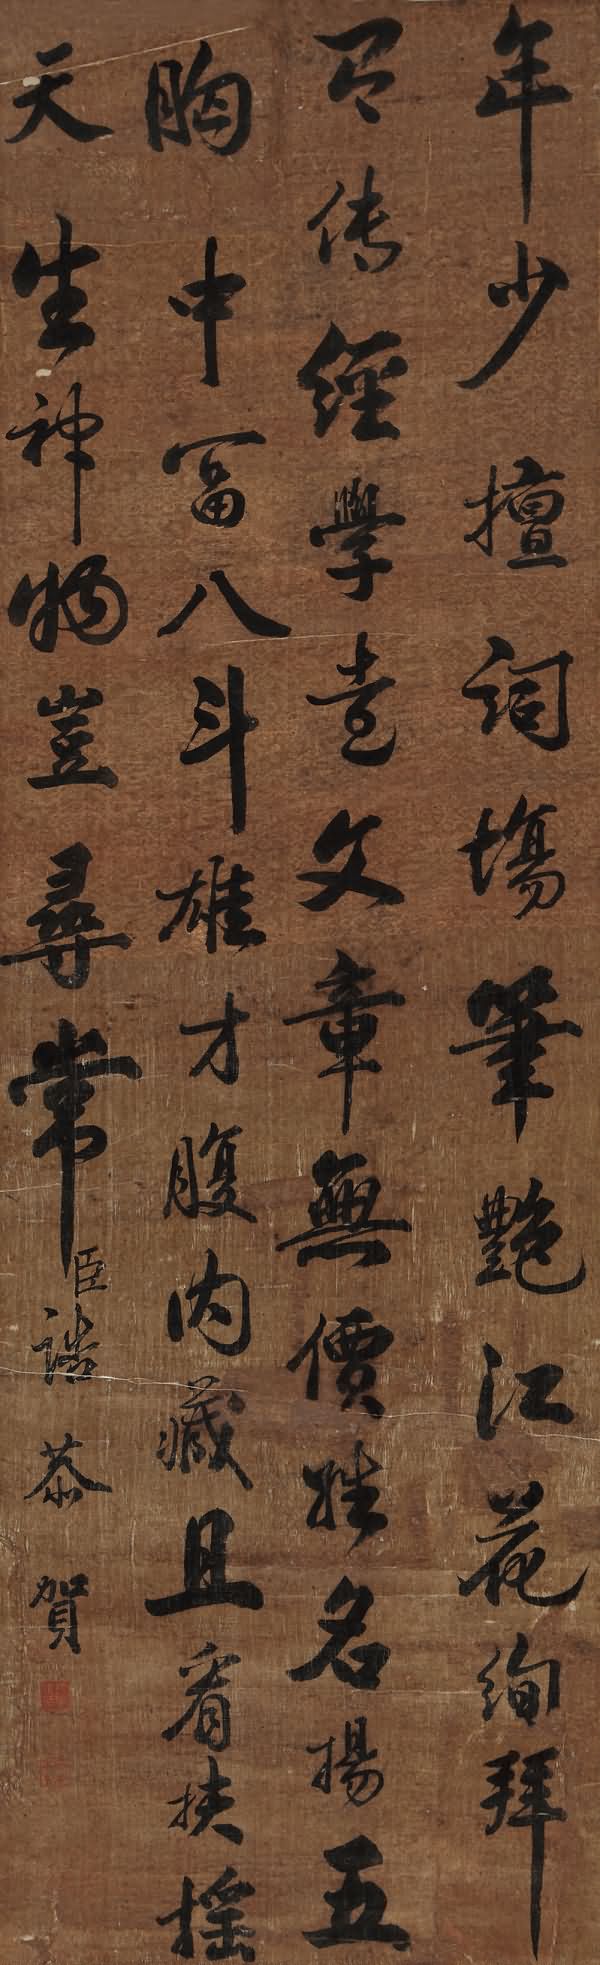 年少擅詞場筆艷江花絢拜
乃传經學老文章無價時名揚五
胸中富八斗雄才腹內藏且看扶搖
天生神物豈尋常
臣誥恭賀